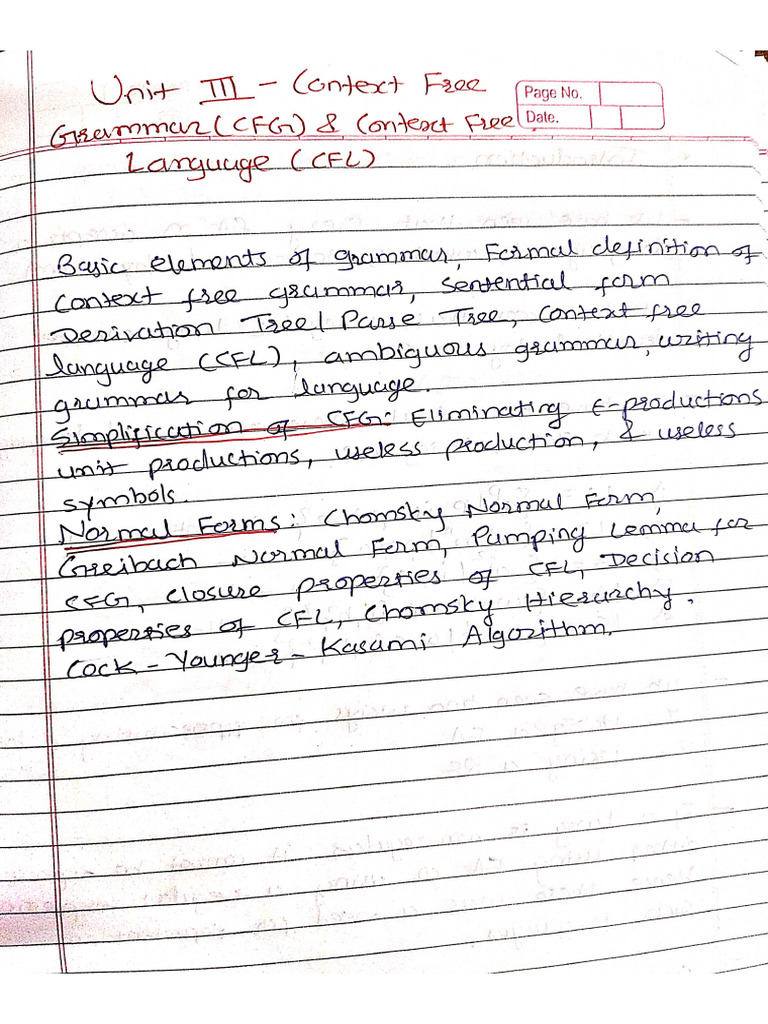 Unit III - Context Free
Page No.
Grammar (CFG) & Context Free
Date.
Language (CFL)
Basic elements of grammar, Formal definition of
context free grammar, Sentential form
Derivation Tree/Parse Tree, Context free
language (CFL), ambiguous grammar, writing
grammar for language.
Simplification of CFG: Eliminating ϵ-productions
unit productions, useless production, & useless
symbols.
Normal Forms: Chomsky Normal Form,
Greibach Normal Form, Pumping Lemma for
CFG, closure properties of CFL, Decision
properties of CFL, Chomsky Hierarchy,
Cock - Younger - Kasami Algorithm.